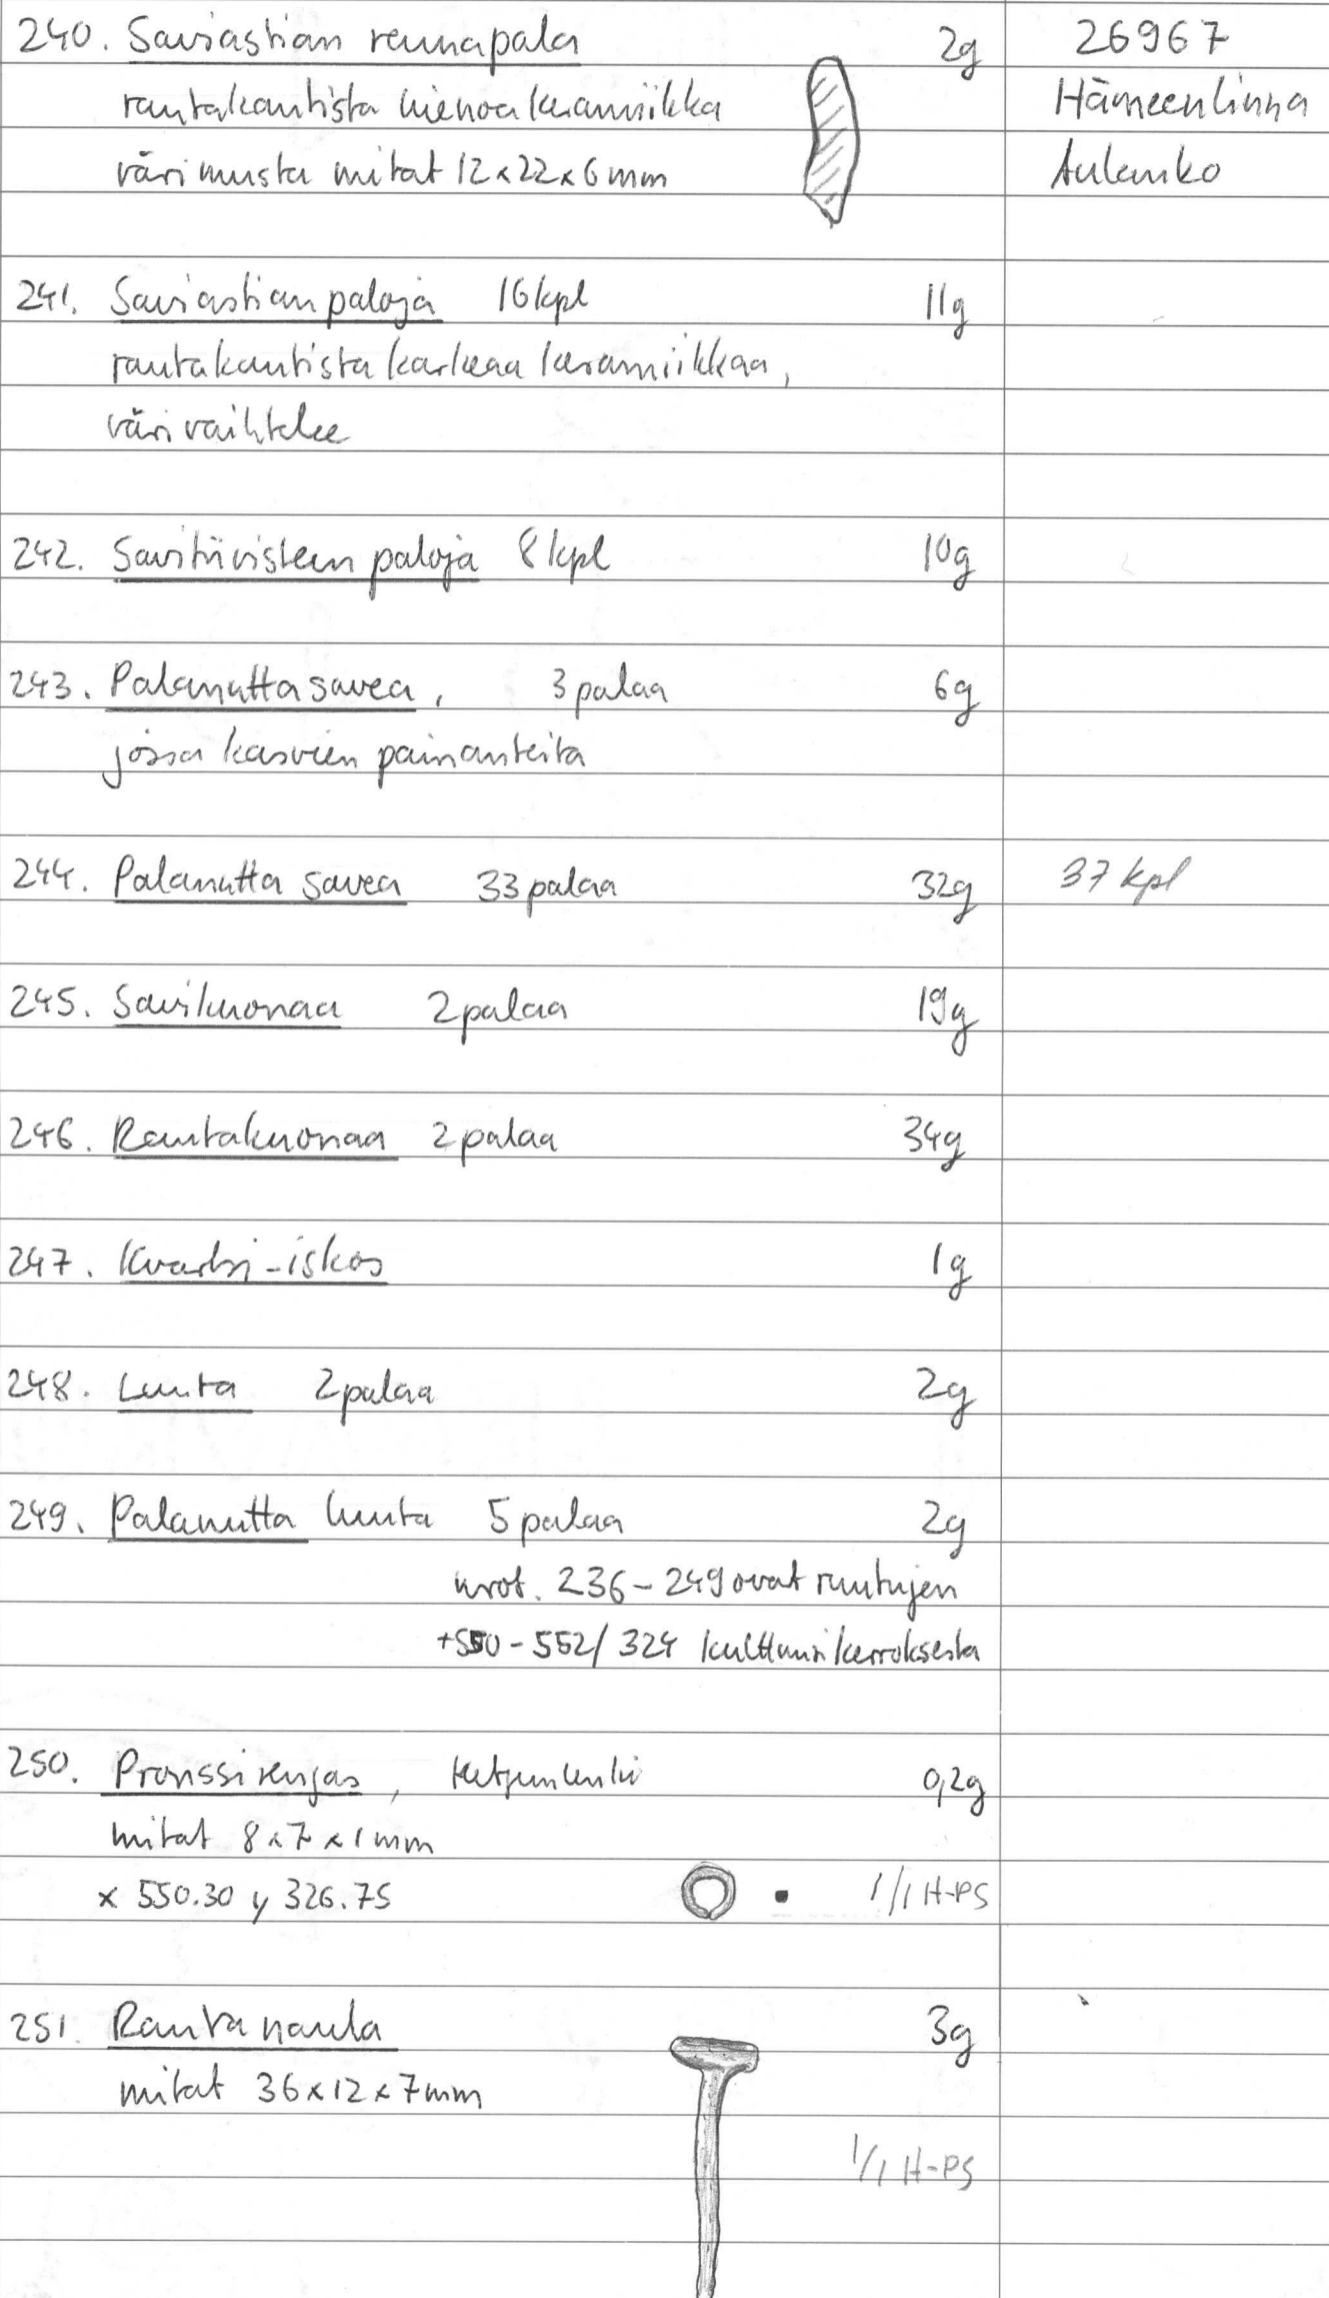 240. Saviastian reunapala 2g 26967
rautakautista hienoa keramiikka Hämeenlinna
väri musta mitat 12x22x6mm Aulanko
241. Saviastian paloja 16kpl 11g
rautakautista karkeaa keramiikkaa,
väri vaihtelee
242. Savitiivisteen paloja 8kpl 10g
243. Palanutta savea, 3 palaa 6g
jossa kasvien painanteita
244. Palanutta savea 33 palaa 32g 37 kpl
245. Savikuonaa 2 palaa 19g
246. Rautakuonaa 2 palaa 34g
247. Kvartsi-iskos 1g
248. Luuta 2 palaa 2g
249. Palanutta luuta 5 palaa 2g
nrot. 236-249 ovat ruutujen
+550-552/324 kulttuurikerroksesta
250. Pronssirengas, ketjunlenkki 0,2g
mitat 8x7x1mm
x 550.30 y 326.75 1/1 H-PS
251. Rautanaula 3g
mitat 36x12x7mm
1/1 H-PS